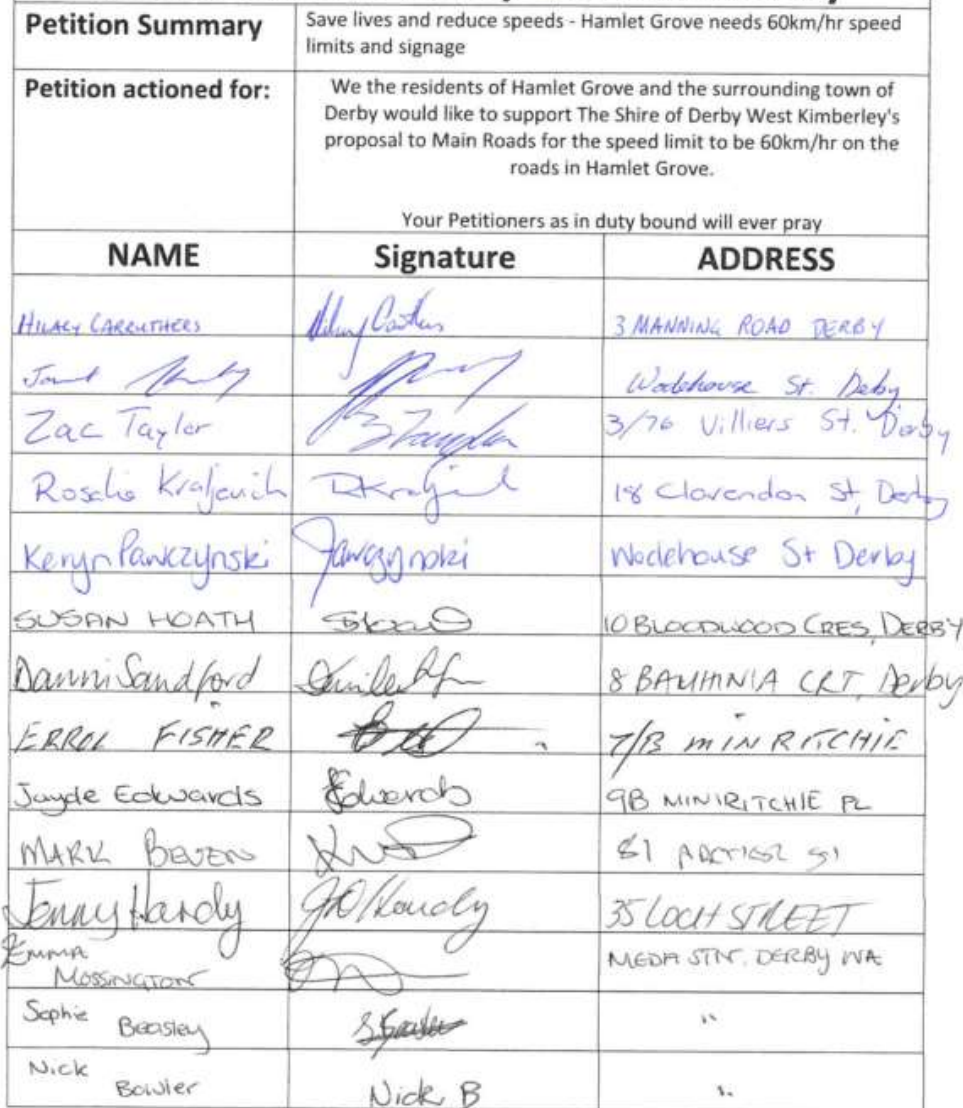 Petition Summary
Save lives and reduce speeds - Hamlet Grove needs 60km/hr speed
limits and signage
Petition actioned for:
We the residents of Hamlet Grove and the surrounding town of
Derby would like to support The Shire of Derby West Kimberley's
proposal to Main Roads for the speed limit to be 60km/hr on the
roads in Hamlet Grove.
Your Petitioners as in duty bound will ever pray
NAME Signature ADDRESS
HILARY CARRUTHERS 3 MANNING ROAD DERBY
Wodehouse St. Derby
Zac Taylor 3/76 Villiers St. Derby
Rosalie Kraljevich 18 Clarendon St, Derby
Keryn Pawczynski Wodehouse St Derby
SUSAN HOATH 10 BLOODWOOD CRES, DERBY
Danni Sandford 8 BAUHINIA CRT, Derby
ERROL FISHER 7/B MINRITCHIE
Jayde Edwards Edwards 9B MINIRITCHIE PL
MARK BEVEN 81
Jenny Hardy 35 LOCH STREET
EMMA MEDA STN. DERBY WA
MOSSINGTON
Sophie Beasley "
Nick Bowler Nick B "